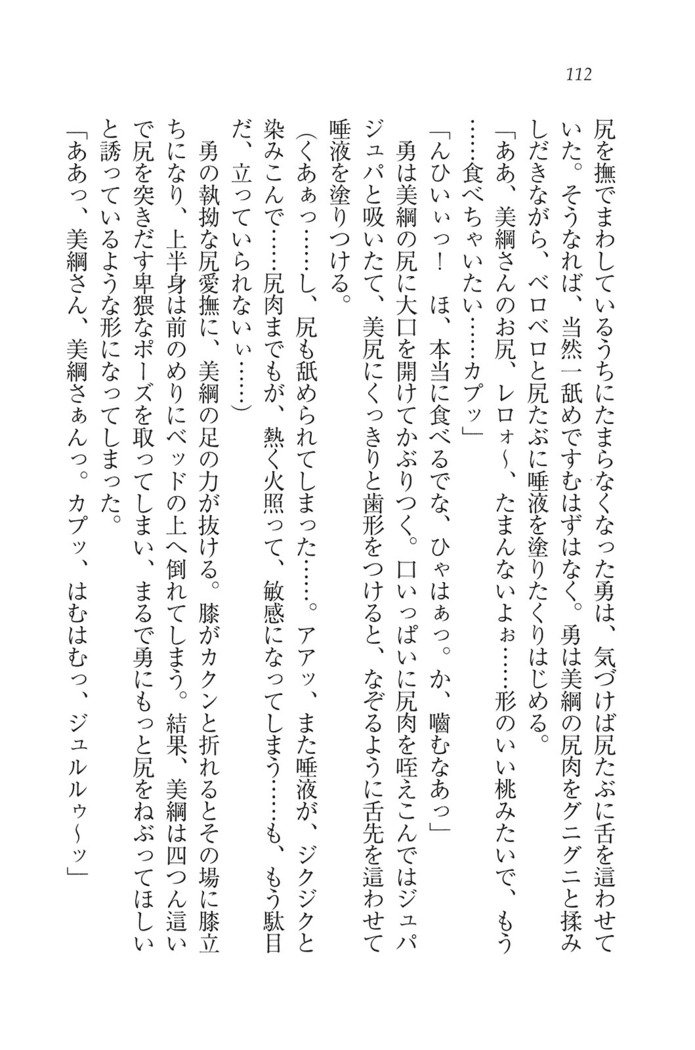 112
尻を撫でまわしているうちにたまらなくなった勇は、気づけば尻たぶに舌を這わせて
いた。そうなれば、当然一舐めですむはずはなく。勇は美綱の尻肉をグニグニと揉み
しだきながら、ベロベロと尻たぶに唾液を塗りたくりはじめる。
「ああ、美綱さんのお尻、レロォ〜、たまんないよぉ……形のいい桃みたいで、もう
……食べちゃいたい……カプッ」
「んひいぃっ！　ほ、本当に食べるでな、ひゃはぁっ。か、嚙むなあっ」
　勇は美綱の尻に大口を開けてかぶりつく。口いっぱいに尻肉を咥えこんではジュパ
ジュパと吸いたて、美尻にくっきりと歯形をつけると、なぞるように舌先を這わせて
唾液を塗りつける。
（くあぁっ……し、尻も舐められてしまった……。アアッ、また唾液が、ジクジクと
染みこんで……尻肉までもが、熱く火照って、敏感になってしまう……も、もう駄目
だ、立っていられないぃ……）
　勇の執拗な尻愛撫に、美綱の足の力が抜ける。膝がカクンと折れるとその場に膝立
ちになり、上半身は前のめりにベッドの上へ倒れてしまう。結果、美綱は四つん這い
で尻を突きだす卑猥なポーズを取ってしまい、まるで勇にもっと尻をねぶってほしい
と誘っているような形になってしまった。
「ああっ、美綱さん、美綱さぁんっ。カプッ、はむはむっ、ジュルルゥ〜ッ」